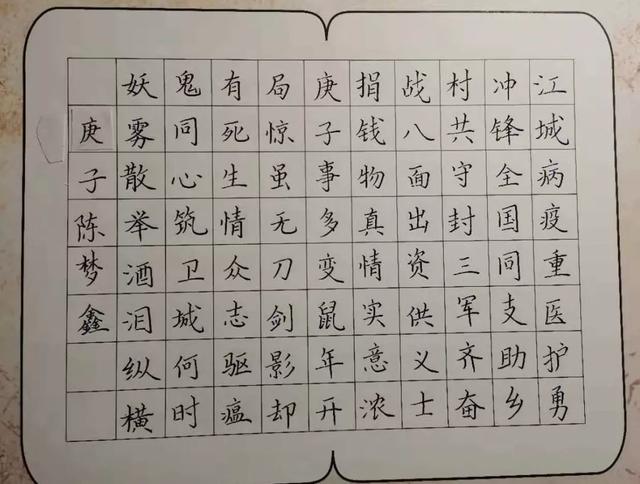 江城病疫重医护勇
冲锋全国同支助乡
村共守封三军齐奋
战八面出资供义士
捐钱物真情实意浓
庚子事多变鼠年开
局惊虽无刀剑影却
有死生情众志驱瘟
鬼同心筑卫城何时
妖雾散举酒泪纵横
庚子陈梦鑫